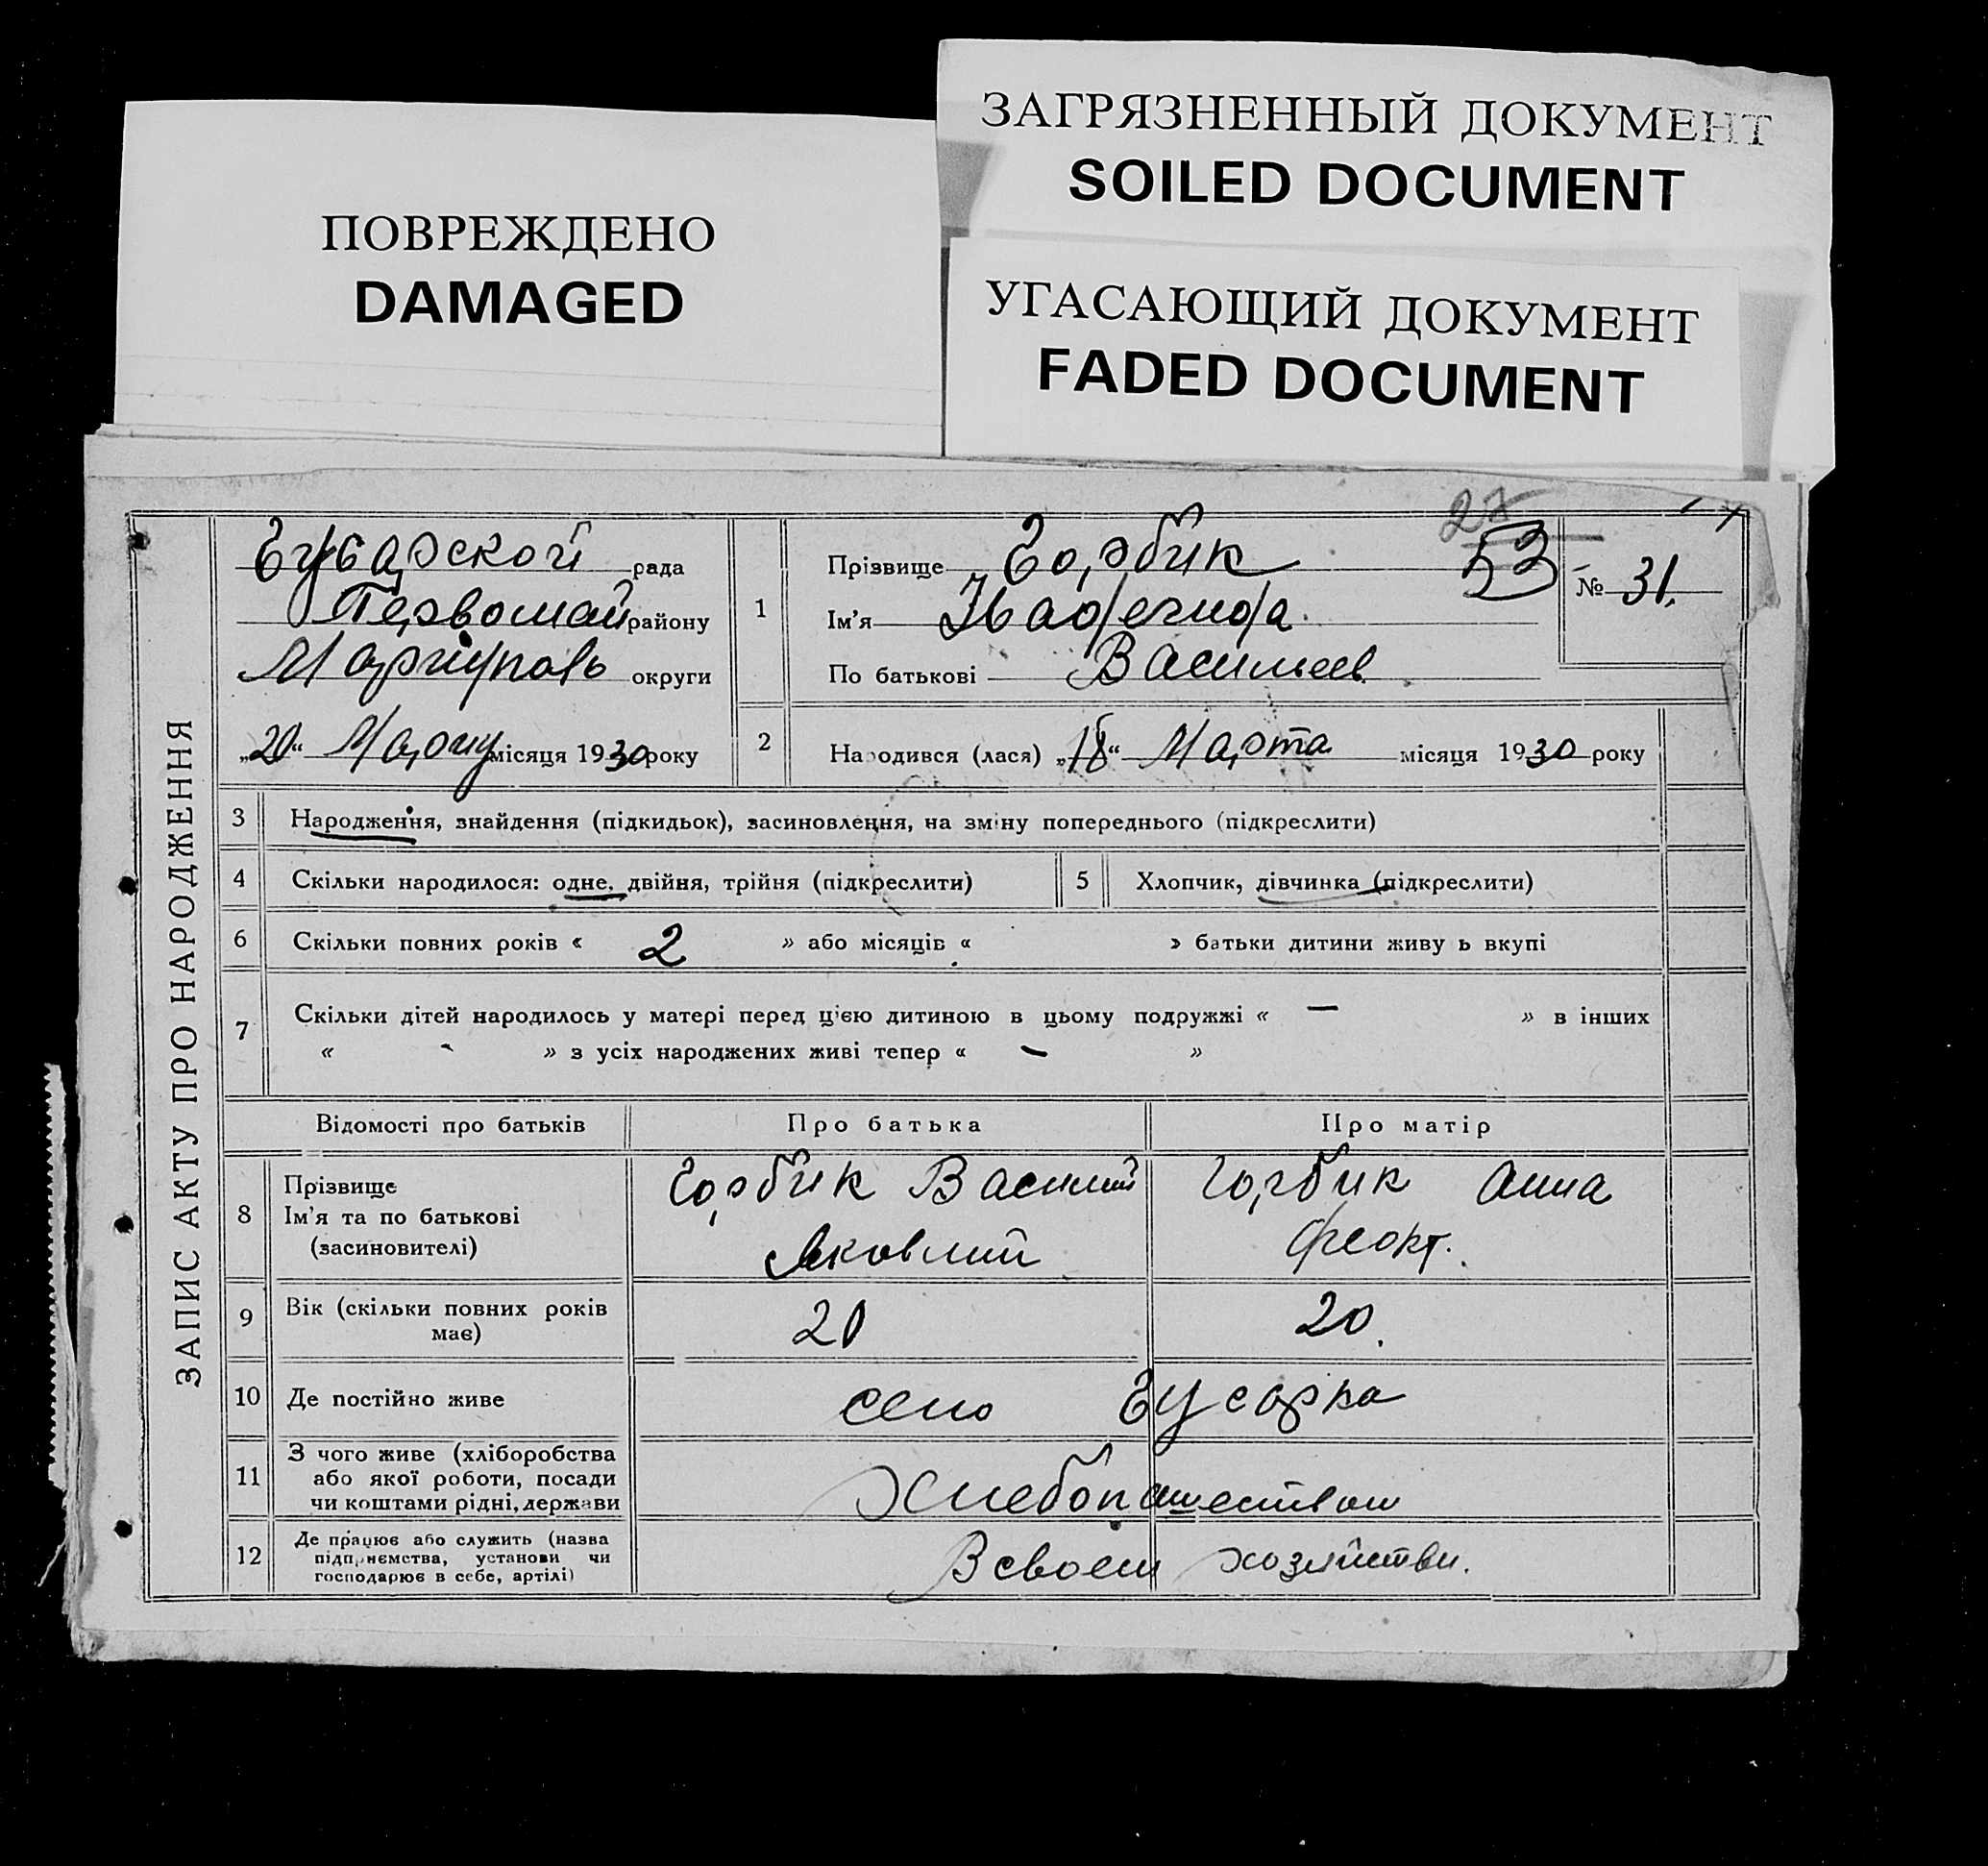 ЗАГРЯЗНЕННЫЙ ДОКУМЕНТ
SOILED DOCUMENT
ПОВРЕЖДЕНО
DAMAGED
УГАСАЮЩИЙ ДОКУМЕНТ
FADED DOCUMENT
ЗАПИС АКТУ ПРО НАРОДЖЕННЯ
Гусарской рада
Первомай району
Мариуполь округи
„20“ Марту місяця 1930 року
27
53
№ 31.
1 Прізвище Горбик
Ім'я
По батькові Васильев.
2 Народився (лася) „18“ Марта місяця 1930 року
3 Народження, знайдення (підкидьок), засиновлення, на зміну попереднього (підкреслити)
4 Скільки народилося: одне, двійня, трійня (підкреслити)
5 Хлопчик, дівчинка (підкреслити)
6 Скільки повних років « 2 » або місяців « » батьки дитини живу ь вкупі
7 Скільки дітей народилось у матері перед ц'єю дитиною в цьому подружжі « — » в інших
« - » з усіх народжених живі тепер « — »
Відомості про батьків Про батька Про матір
8 Прізвище
Ім'я та по батькові
(засиновителі)
Горбик Василий
Яковлий
Горбик Анна
Феокт.
9 Вік (скільки повних років
має)
20 20.
10 Де постійно живе село Гусарка
11 З чого живе (хліборобства
або якої роботи, посади
чи коштами рідні, держави
Хлебопашеством
12 Де працює або служить (назва
підприємства, установи чи
господарює в себе, артілі)
В своем хозяйстви.